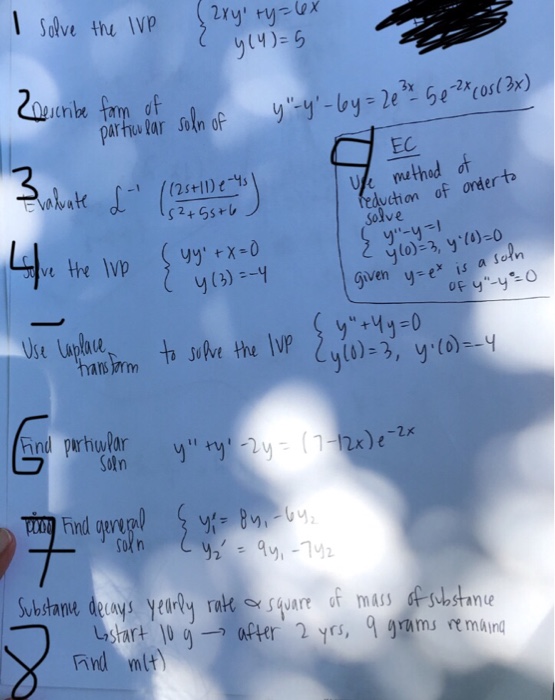 1 Solve the IVP { 2xy' + y = 6x
y(4) = 5
2 Describe form of
particular soln of y'' - y' - 6y = 2e^3x - 5e^-2x cos(3x)
3 Evaluate L^-1 ( (2s+11)e^-4s / s^2+5s+6 )
4 Solve the IVP { yy' + x = 0
y(3) = -4
9 EC
Use method of
reduction of order to
solve
{ y'' - y = 1
y(0) = 3, y'(0) = 0
given y = e^x is a soln
of y'' - y = 0
Use Laplace
transform to solve the IVP { y'' + 4y = 0
y(0) = 3, y'(0) = -4
6 Find particular
soln y'' + y' - 2y = (7-12x)e^-2x
7 Find general
soln { y₁' = 8y₁ - 6y₂
y₂' = 9y₁ - 7y₂
8 Substance decays yearly rate ∝ square of mass of substance
↳ start 10 g → after 2 yrs, 9 grams remaing
Find m(t)